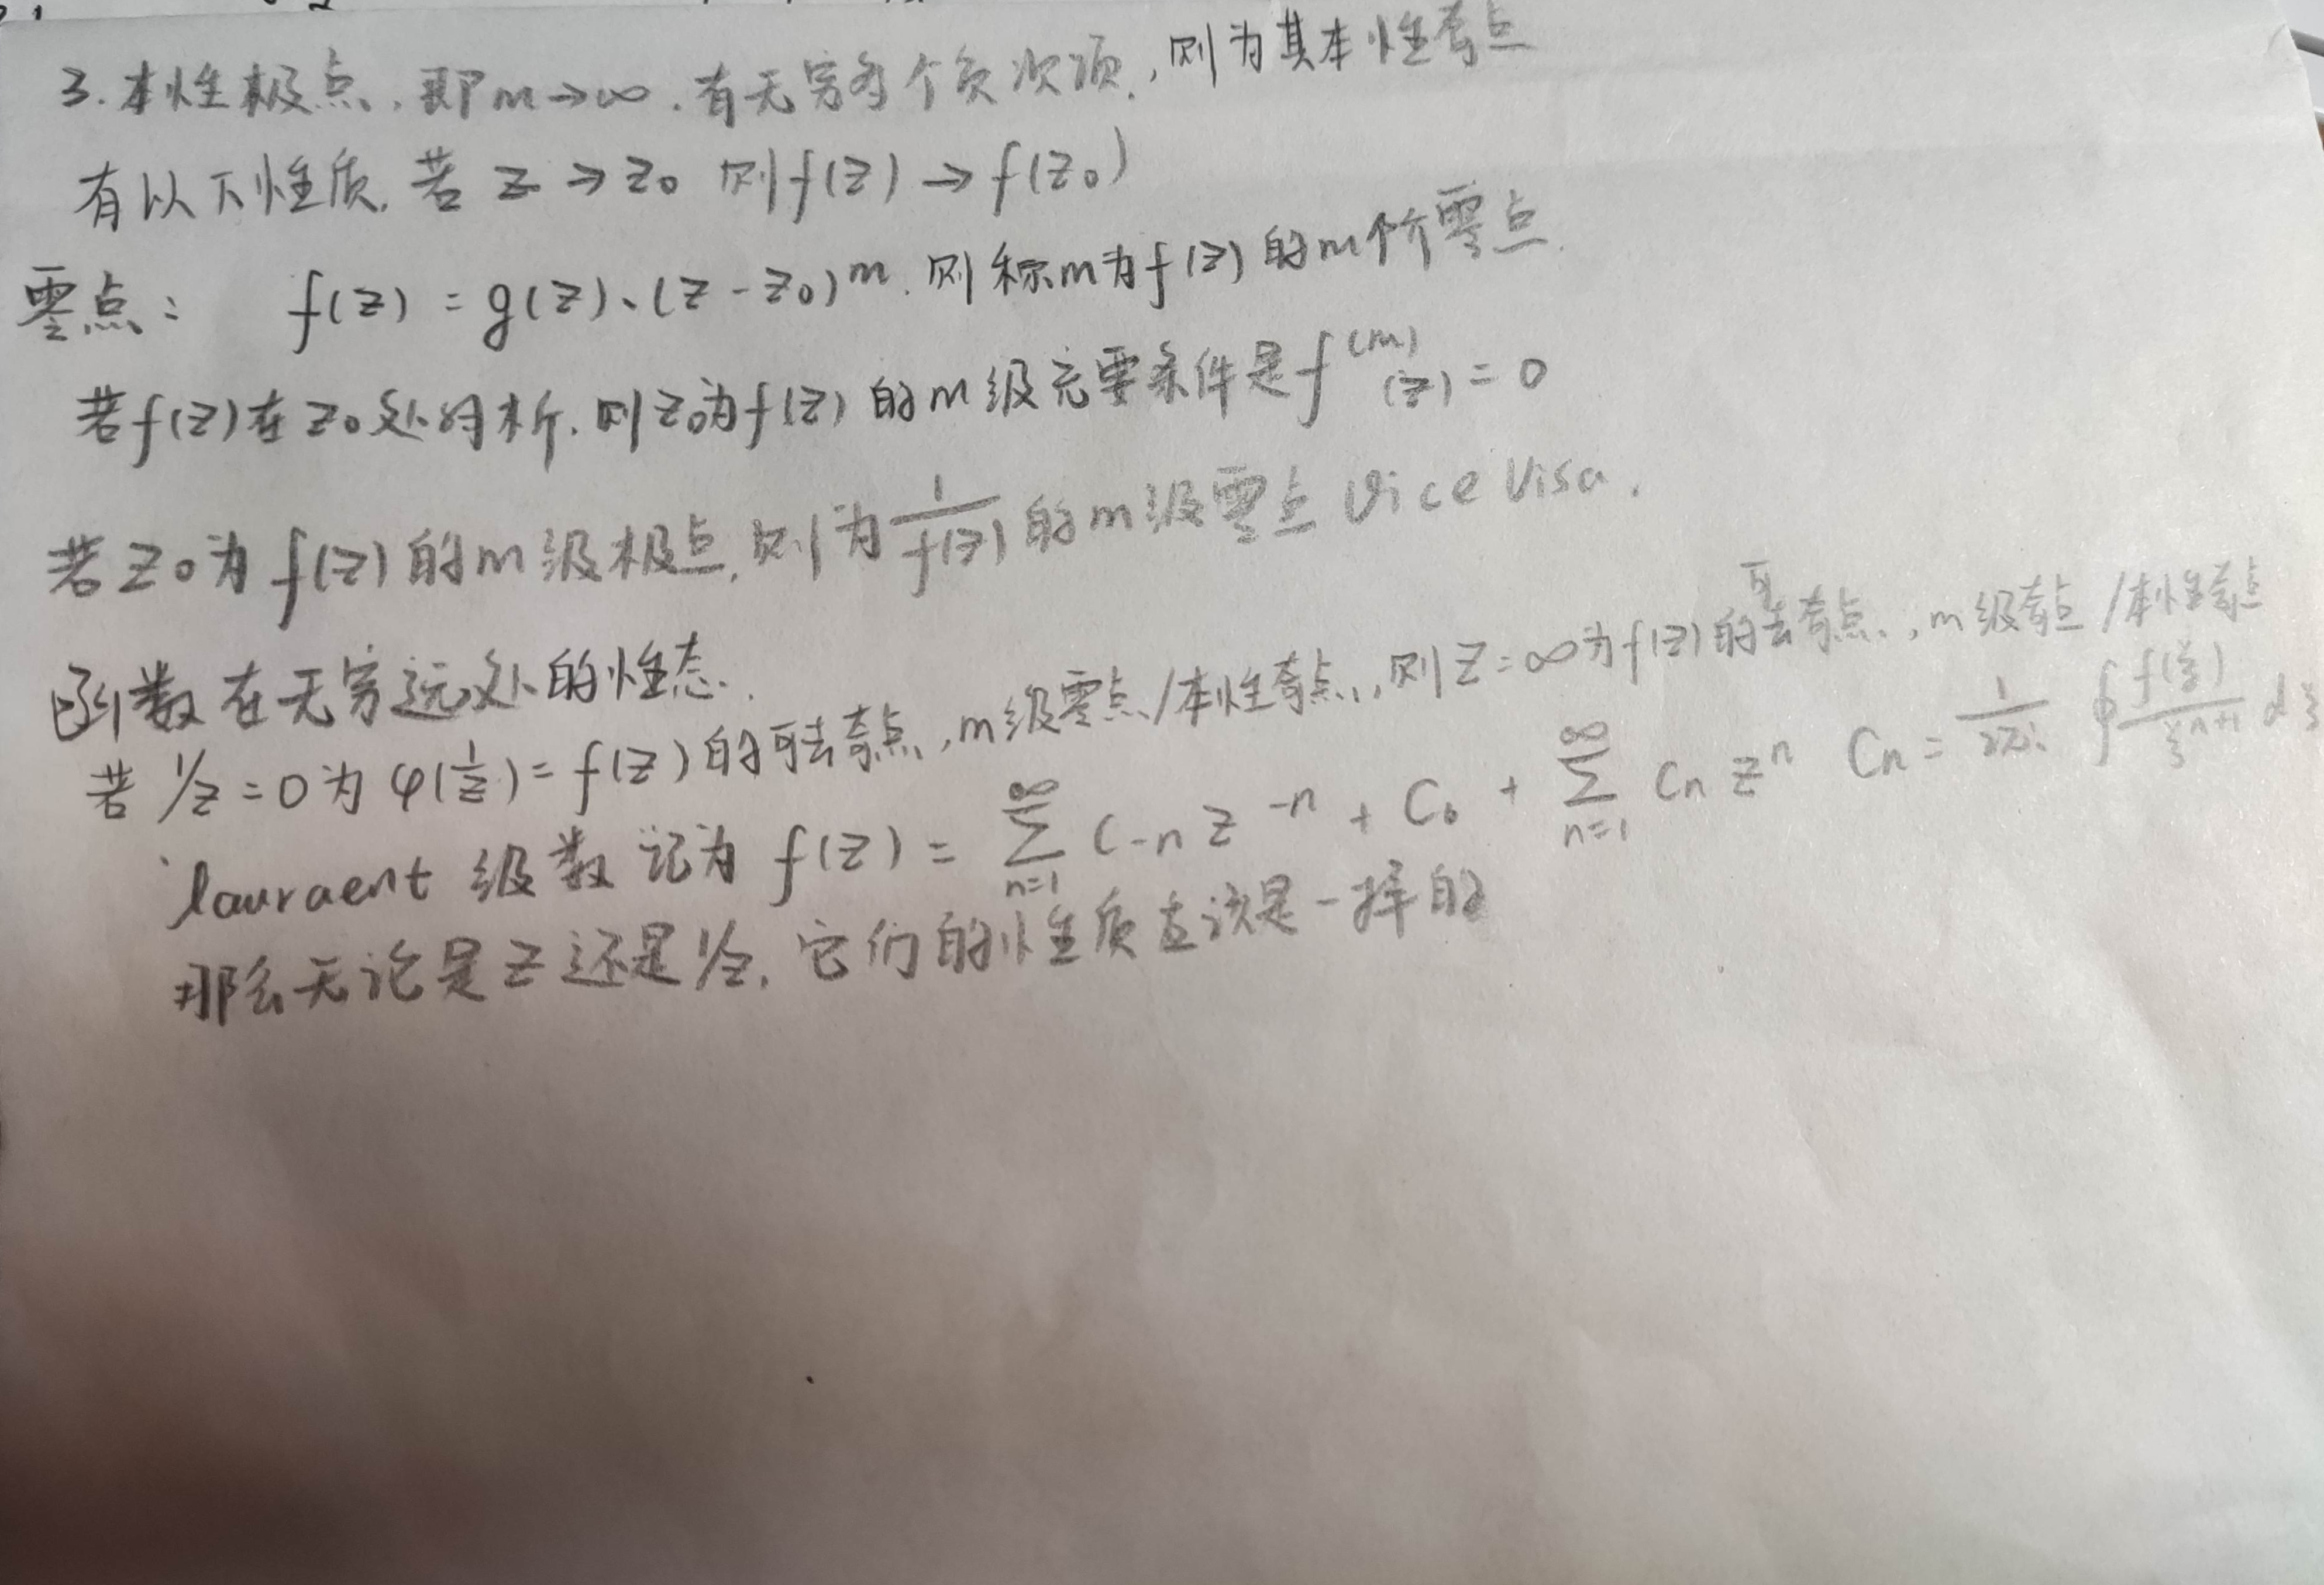 3. 本性极点, 即m→∞. 有无穷多个负次项, 则为其本性奇点
有以下性质, 若 z→z₀ 则f(z)→f(z₀)
零点: f(z) = g(z)、(z-z₀)ᵐ. 则称m为f(z)的m个阶零点.
若f(z)在z₀处解析. 则z₀为f(z)的m级充要条件是f⁽ᵐ⁾(z)=0
若z₀为f(z)的m级极点, 则为1/f(z)的m级零点 vice visa.
函数在无穷远处的性态.
若 1/z=0为φ(1/z)=f(z)的可去奇点, m级零点/本性奇点, 则z=∞为f(z)的可去奇点, m级奇点/本性奇点
lauraent 级数记为 f(z) = ∑_{n=1}^{∞} C-n z⁻ⁿ + C₀ + ∑_{n=1}^{∞} Cn zⁿ Cn = 1/2πi ∮ f(ξ)/ξⁿ⁺¹ dξ
那么无论是z还是1/z, 它们的性质应该是一样的